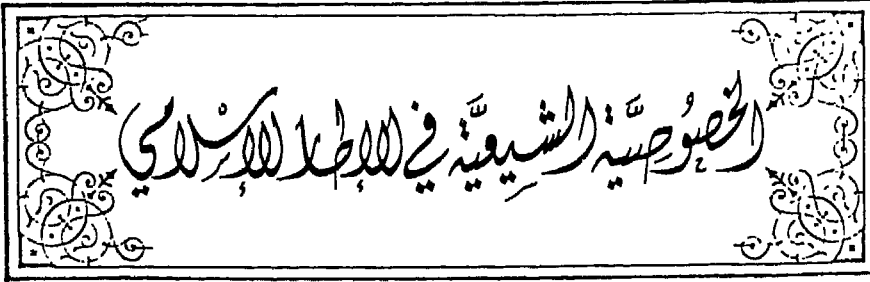 الخصُوصِيَّة الشِيعيَّة في الإطار الإسْلامي